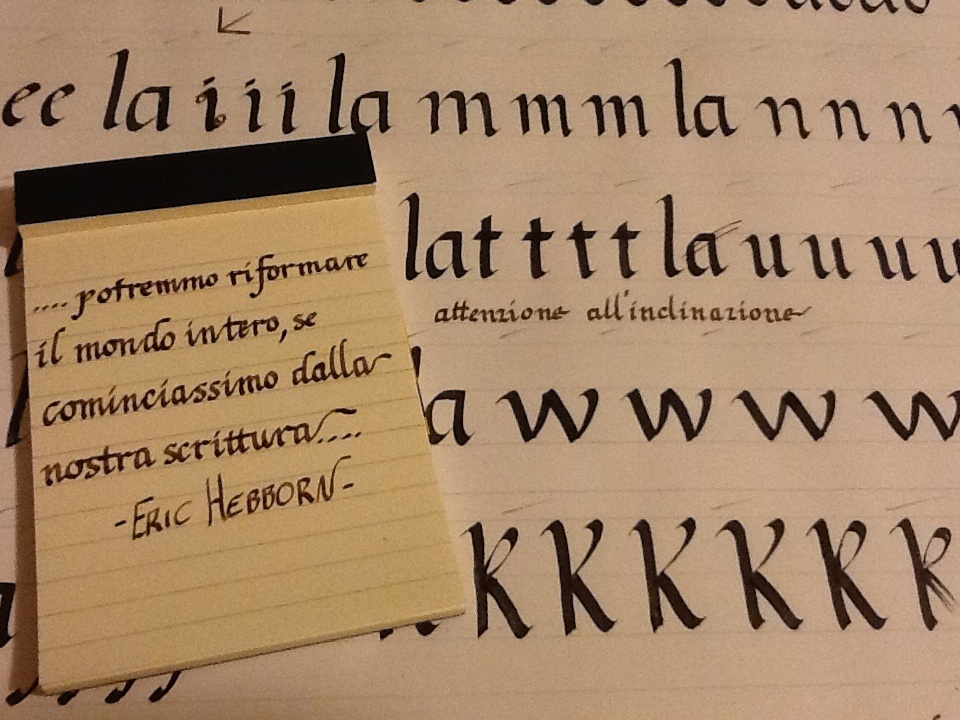 ee la i i i la m m m la n n n
lat t t t la u u u u
attenzione all'inclinazione
a w w w w
K K K K K K
.... potremmo riformare
il mondo intero, se
cominciassimo dalla
nostra scrittura....
-ERIC HEBBORN-